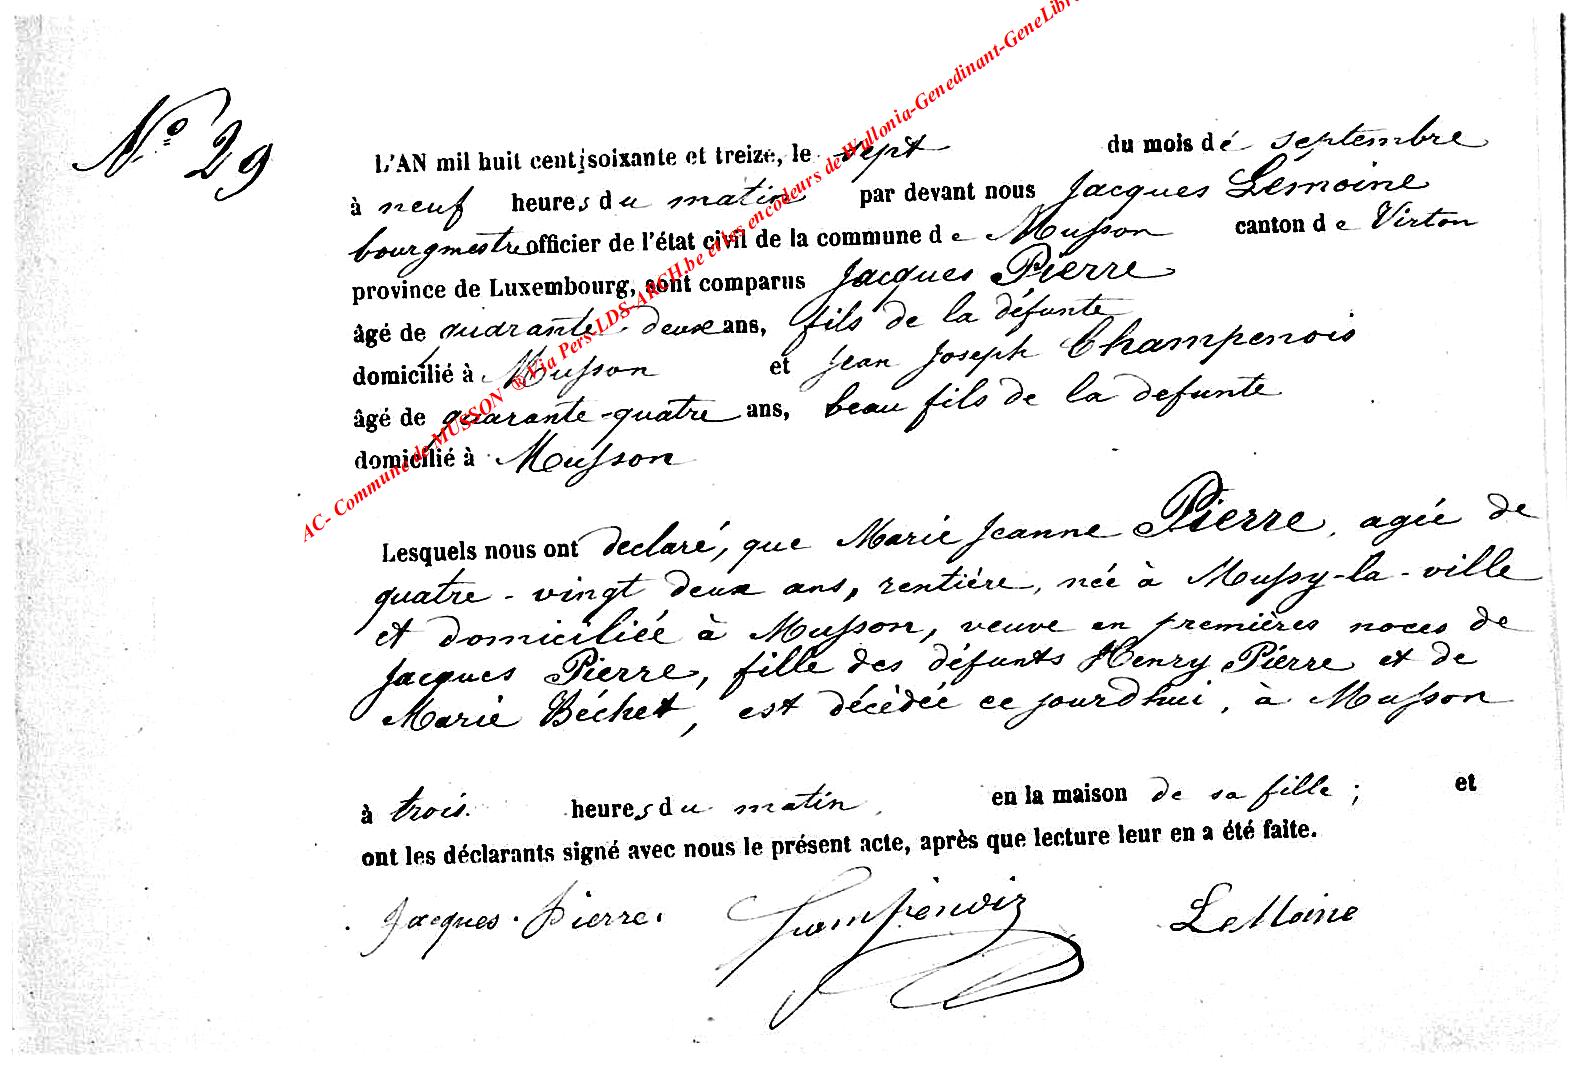 N.º 29
L'AN mil huit cent soixante et treize, le sept du mois dé septembre
à neuf heures du matin par devant nous Jacques Lemoine
bourgmestre officier de l'état civil de la commune de Musson canton de Virton
province de Luxembourg, sont comparus Jacques Pierre
âgé de quarante-deux ans, fils de la défunte
domicilié à Musson et Jean Joseph Champenois
âgé de quarante-quatre ans, beau fils de la defunte
domicilié à Musson
Lesquels nous ont declaré, que Marie Jeanne Pierre, agée de
quatre-vingt deux ans, rentière, née à Mussy-la-ville
et domiciliée à Musson, veuve en premières noces de
Jacques Pierre, fille des défunts Henry Pierre et de
Marie Béchet, est décédée ce jourdhui, à Musson
à trois heures du matin, en la maison de sa fille ; et
ont les déclarants signé avec nous le présent acte, après que lecture leur en a été faite.
Jacques Pierre. LeMoine
AC- Commune de MUSSON ® Via Pers-LDS-ARCH.be et les encodeurs de Wallonia-Genedinant-GeneLibr